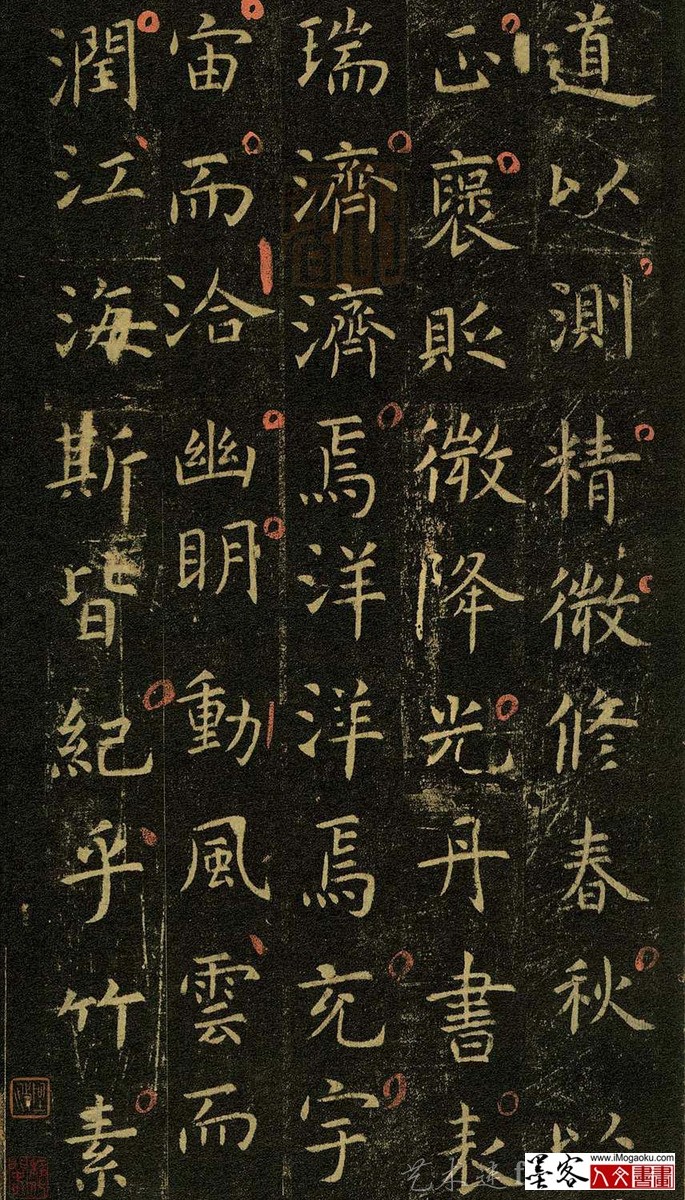 道以測精微修春秋以
正褒貶微降光丹書表
瑞濟濟焉洋洋焉充宇
宙而洽幽明動風雲而
潤江海斯皆紀乎竹素
墨客
www.iMogaoku.com
人文書畫